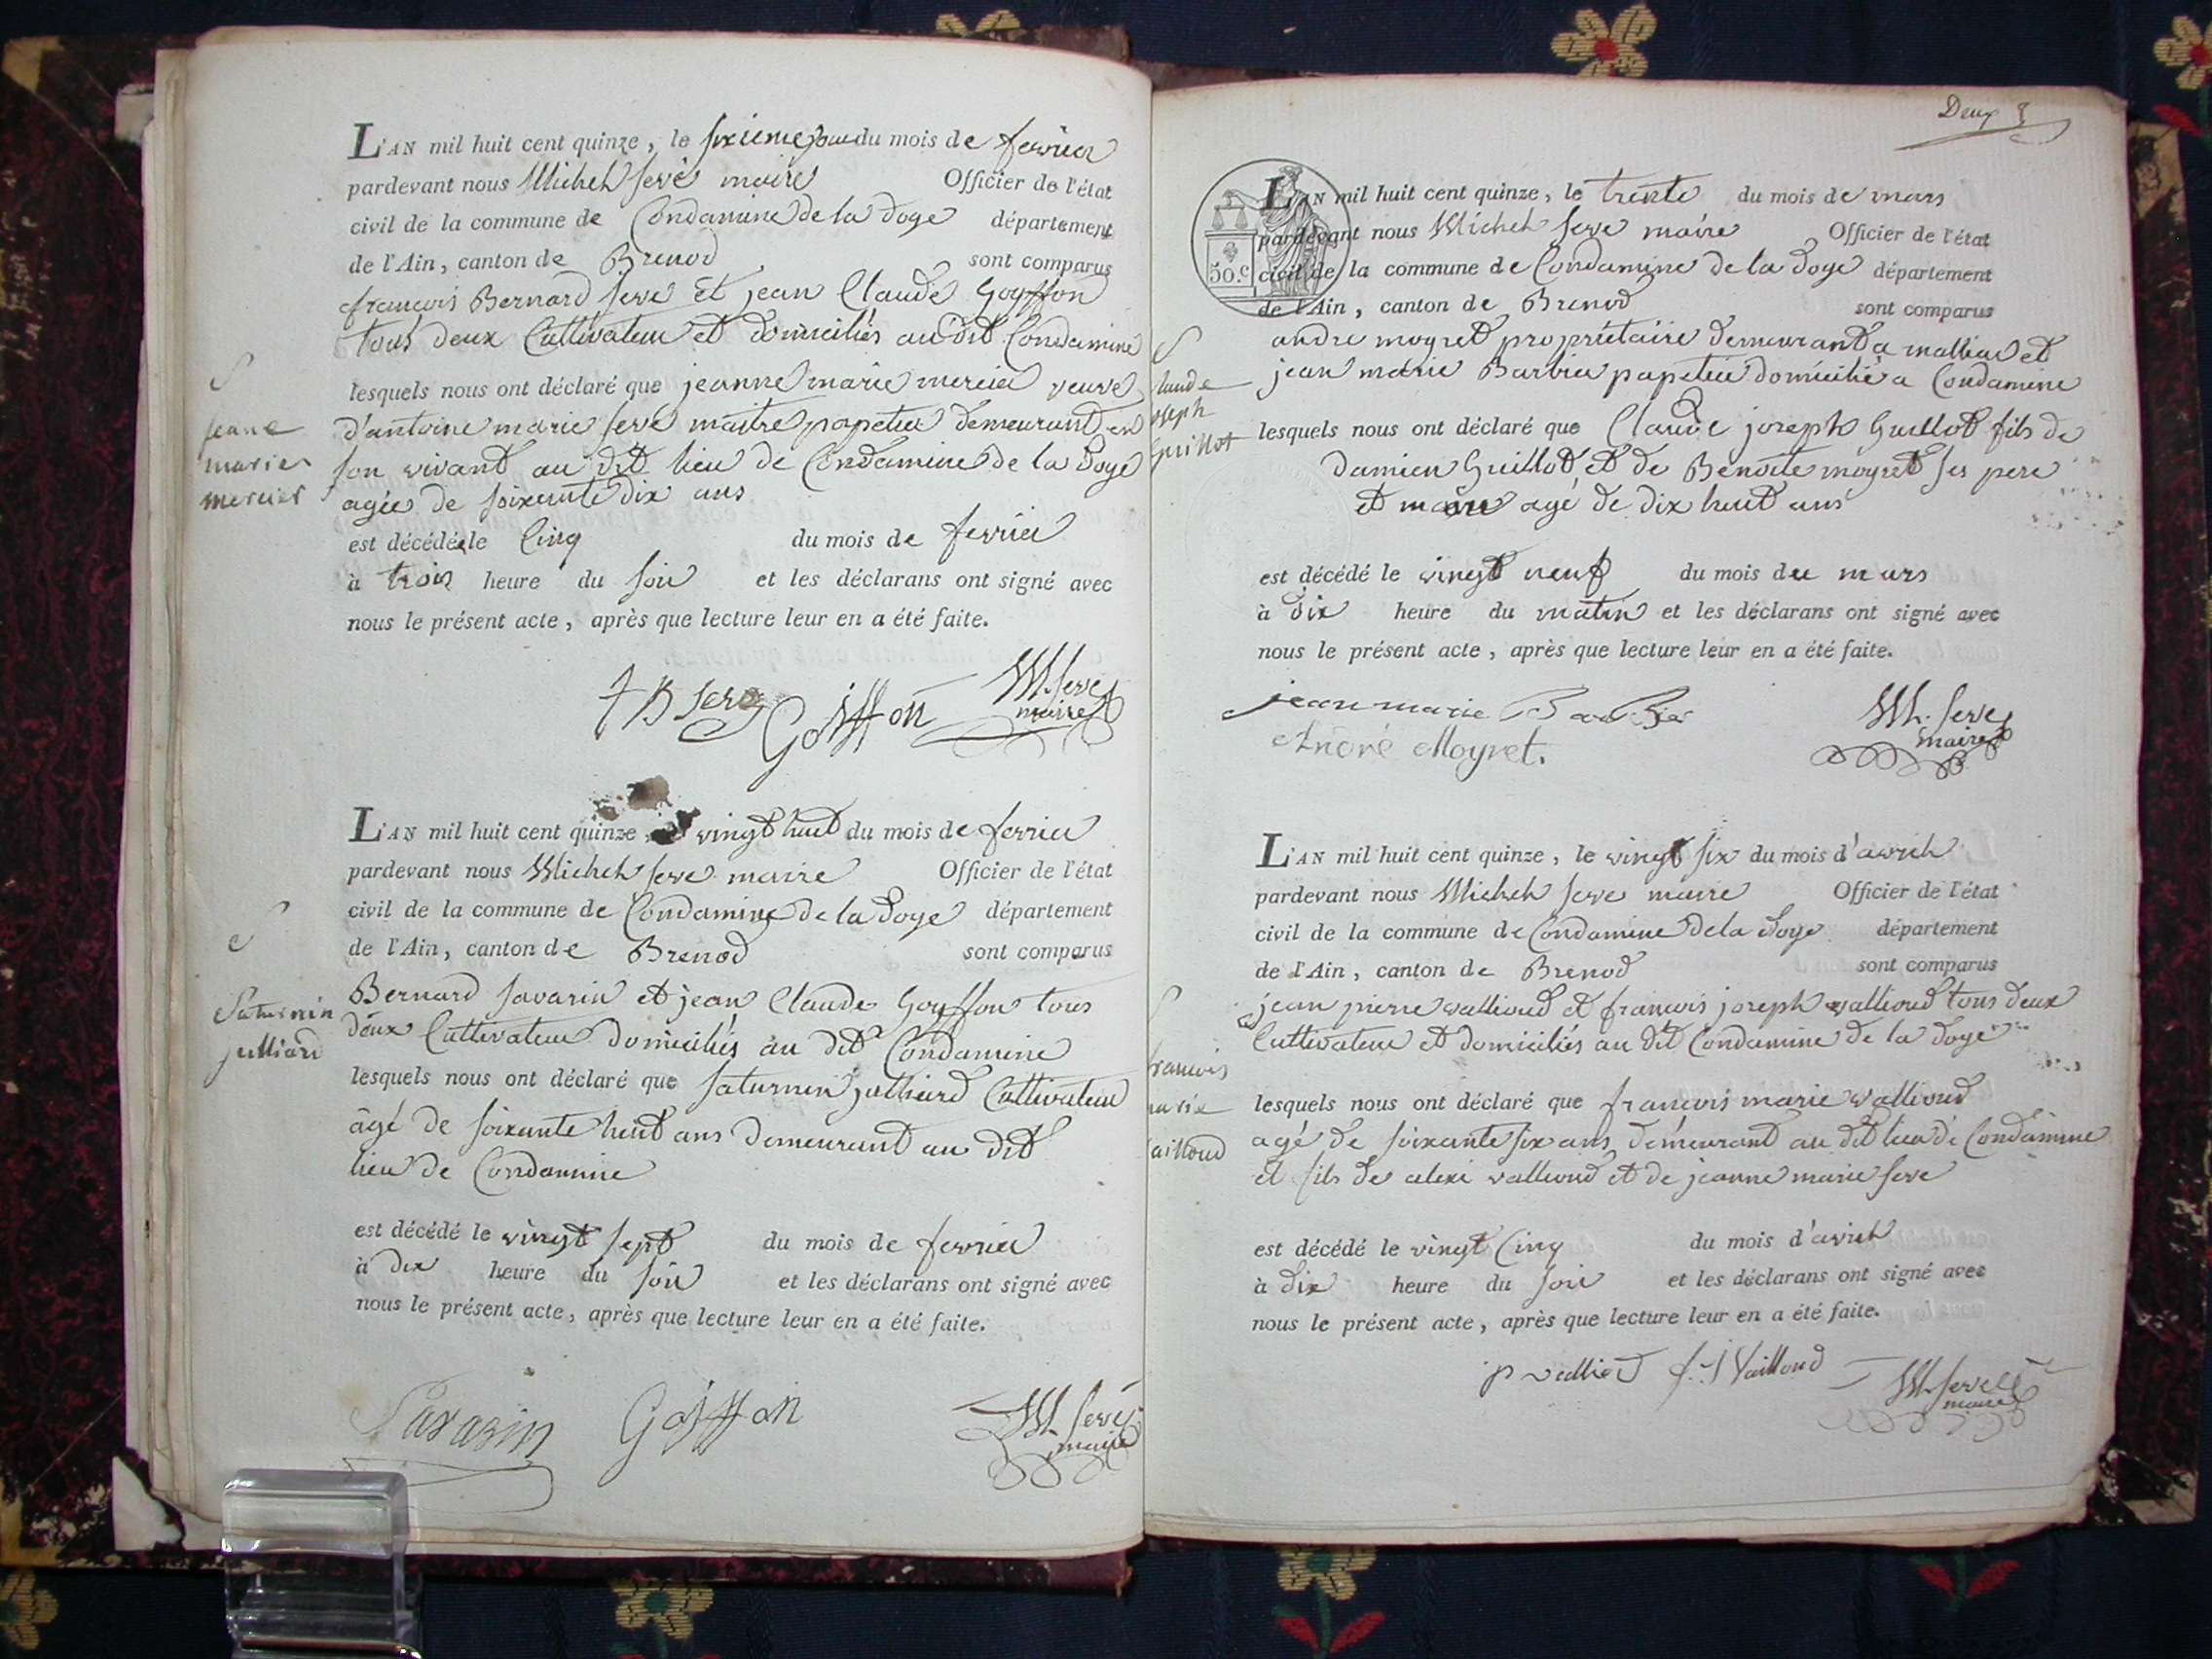 L'AN mil huit cent quinze, le sixieme jour du mois de fevrier
pardevant nous Michel Seve maire Officier de l'état
civil de la commune de Condamine de la Doye département
de l'Ain, canton de Brenod sont comparus
francois Bernard Seve et jean Claude Goyffon
tous deux Cultivateur et domiciliés au dit Condamine
lesquels nous ont déclaré que jeanne marie mercier veuve
d'antoine marie Seve maitre papetier demeurant en
son vivant au dit lieu de Condamine de la Doye
agée de soixante dix ans
est décédée le Cinq du mois de fevrier
à trois heure du soir et les déclarans ont signé avec
nous le présent acte, après que lecture leur en a été faite.
jeane
marie
mercier
f B Seve Goiffon M. Seve
maire
L'AN mil huit cent quinze, vingt huit du mois de fevrier
pardevant nous Michel Seve maire Officier de l'état
civil de la commune de Condamine de la Doye département
de l'Ain, canton de Brenod sont comparus
Bernard Savarin et jean Claude Goyffon tous
deux Cultivateur domiciliés au dit Condamine
lesquels nous ont déclaré que Saturnin julliard Cultivateur
âgé de soixante huit ans demeurant au dit
lieu de Condamine
est décédé le vingt sept du mois de fevrier
à dix heure du soir et les déclarans ont signé avec
nous le présent acte, après que lecture leur en a été faite.
Saturnin
julliard
Savarin Goiffon M. Seve
maire
Deux
50.c
L'AN mil huit cent quinze, le trente du mois de mars
pardevant nous Michel Seve maire Officier de l'état
civil de la commune de Condamine de la Doye département
de l'Ain, canton de Brenod sont comparus
andre moyret propriétaire demeurant a malliat et
jean marie Barbier papetier domicilié a Condamine
lesquels nous ont déclaré que Claude joseph Guillot fils de
Damien Guillot et de Benoite moyret ses pere
et mere agé de dix huit ans
est décédé le vingt neuf du mois de mars
à dix heure du matin et les déclarans ont signé avec
nous le présent acte, après que lecture leur en a été faite.
laude
oseph
Guillot
jean marie Barbier M. Seve
maire
André Moyret.
L'AN mil huit cent quinze, le vingt six du mois d'avril
pardevant nous Michel Seve maire Officier de l'état
civil de la commune de Condamine de la Doye département
de l'Ain, canton de Brenod sont comparus
jean pierre vallioud et francois joseph vallioud tous deux
Cultivateur et domiciliés au dit Condamine de la Doye
lesquels nous ont déclaré que francois marie vallioud
agé de soixante six ans demeurant au dit lieu de Condamine
et fils de alexi vallioud et de jeanne marie Seve
est décédé le vingt Cinq du mois d'avril
à dix heure du soir et les déclarans ont signé avec
nous le présent acte, après que lecture leur en a été faite.
francois
marie
ailloud
f. j Vailloud M. Seve
maire